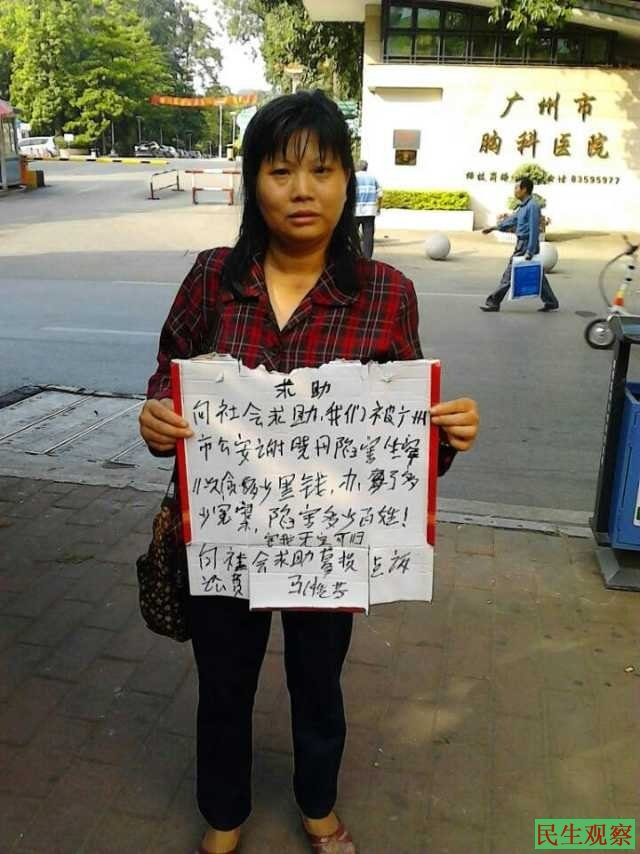 广州市
胸科医院
83595977
求助
向社会求助,我们被广州
市公安谢晓丹陷害坐牢
少黑钱,办
少冤案,陷害多少百姓!
向社会求助募捐点
法费
民生观察